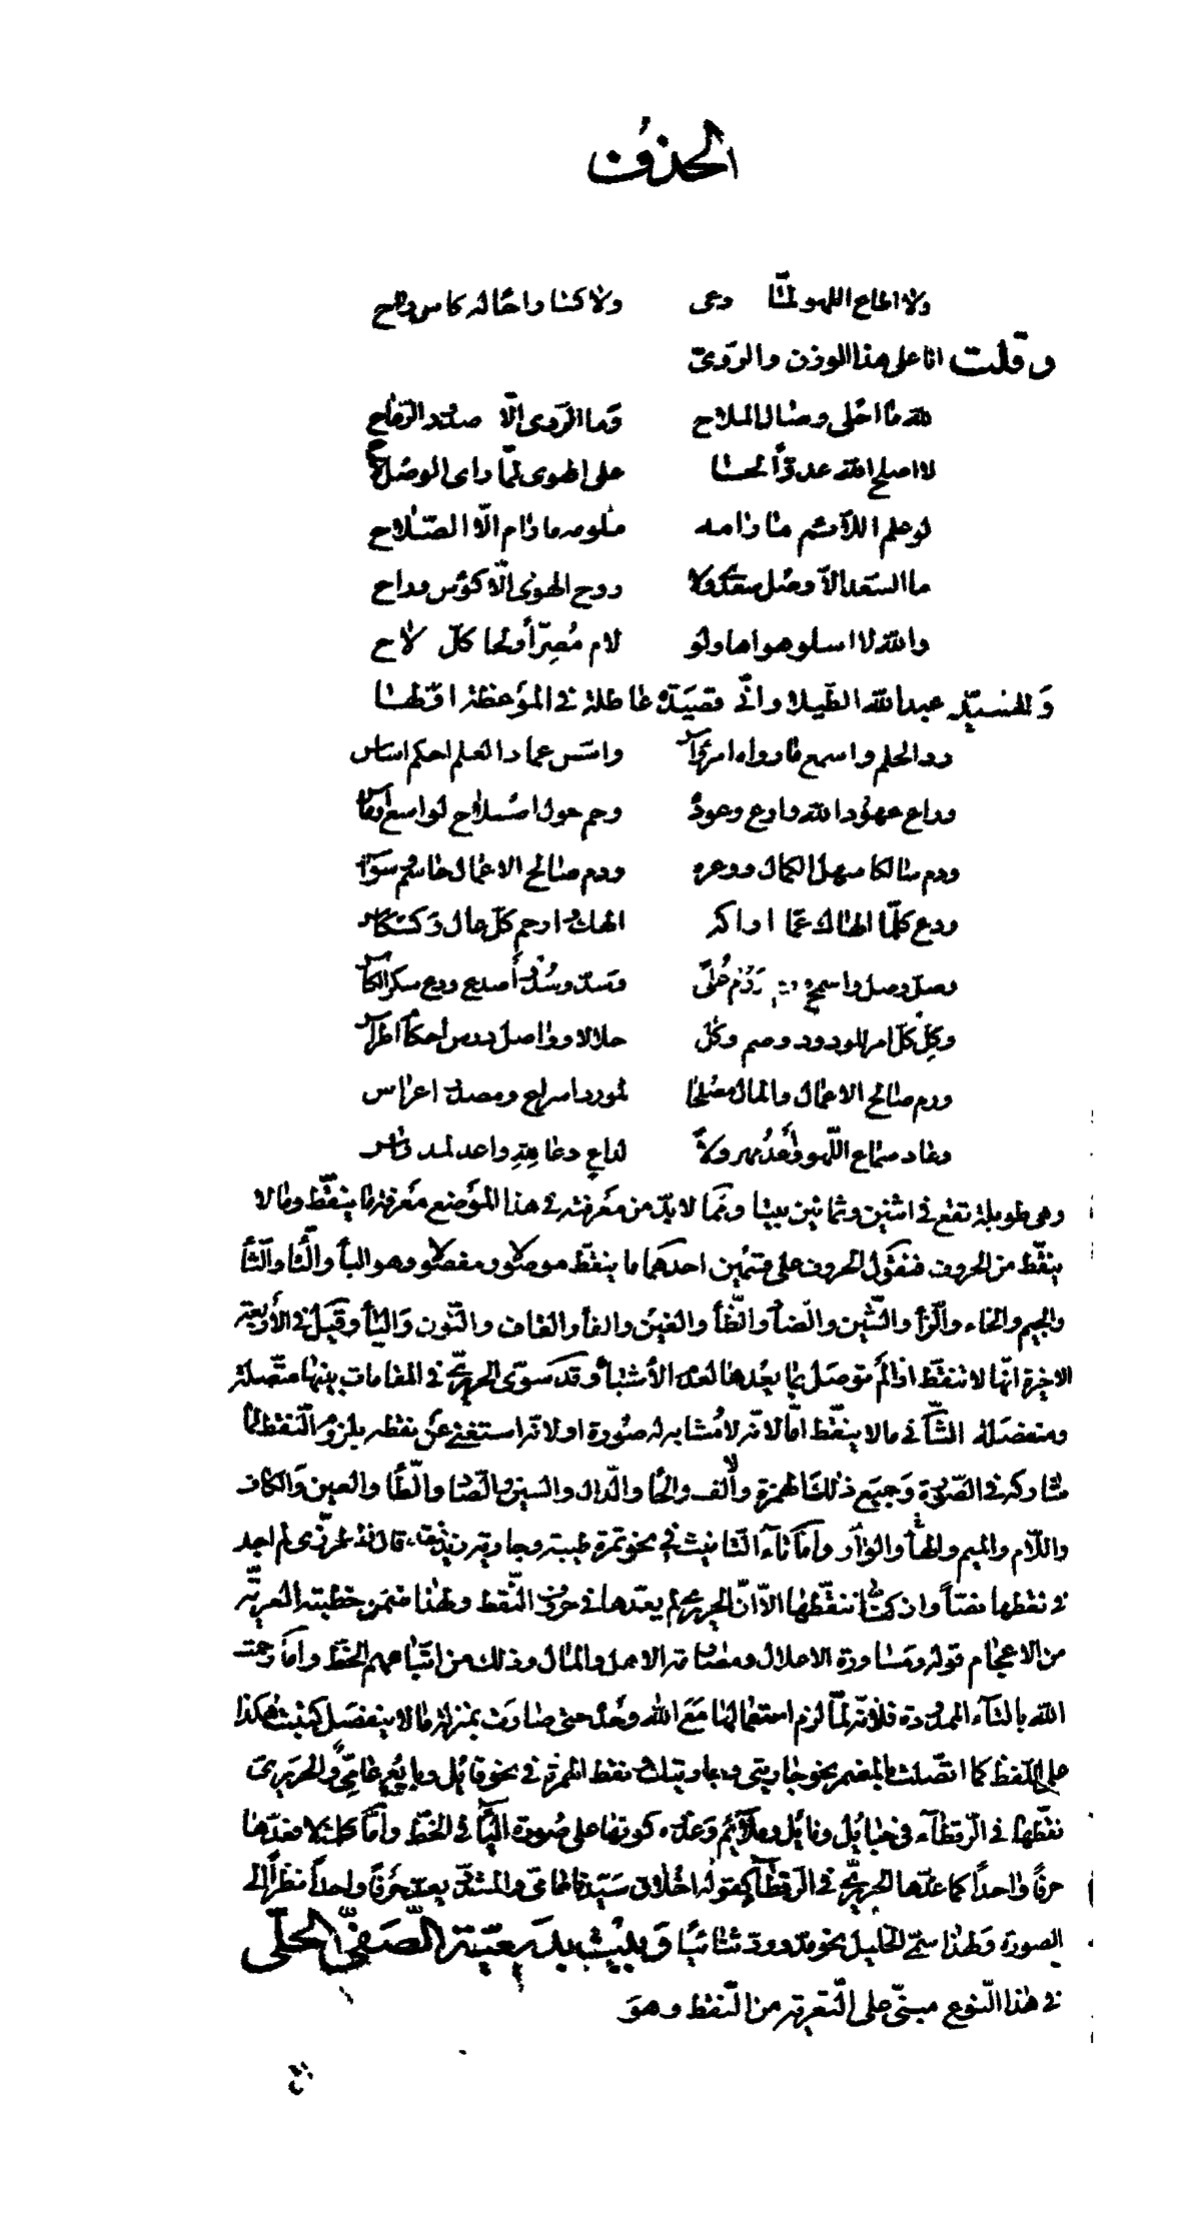 الحذف
ولا اطاع اللهو لمّا دعى ولا كسا راحا له كاس راح
وقلت انا على هذا الوزن والروىّ
لله ما احلى وصال الملاح وما الردى الّا صدود الرداح
لا اصلح الله عدوّا لحا على الهوى لمّا راى الوصل
لو علم اللائم ما رامه ملومه ما رام الّا الصلاح
ما السعد الّا وصل وروح الهوى الّا كؤس وراح
والله لا اسلو هواها ولو لام مُصِرّاً ولحا كلّ لاح
وللسيّد عبد الله الطبلاوى قصيدة عاطلة فى الموعظة اوّلها
رد الحلم واسمع ما رواه امرؤ واسس عماد العلم احكم اساس
وراع عهود الله وارع وعوده وحم حول اصلاح لواسع
ورم سالكا سهل الكمال ووعره ودم صالح الاعمال حاسم
ودع كلّما الهاك عمّا اواكر الهك وارحم كلّ حال وكسكاس
وصلّ وصل واسمح ودع سكر الكاس
وكِل كلّ امر للودود وصم وكل حلالا وواصل درس احكام
ودم صالح الاعمال والمال مصلحا لمورد اسراج ومصدر اعراس
وعاد سماع اللهو لداع دعا
وهى طويلة تقع فى اثنين وثمانين بيتا وممّا لا بدّ من معرفته فى هذا الموضع معرفة ما ينقّط وما لا
ينقّط من الحروف فنقول الحروف على قسمين احدهما ما ينقط موصولا ومفصولا وهو البأ والتأ والثأ
والجيم والخاء والزأ والشين والضاد والظأ والغين والفأ والقاف والنون واليأ وقيل فى الأربعة
الاخيرة انّها لا تنقط اذا لم توصل بما بعدها لعدم الأشتباه وقد سوّى الحريرىّ فى المقامات بينها متصلة
ومنفصلة الثانى مالا ينقّط امّا لانّه لا مُشابه له صورة او لانّه استغنى عن نقطه بلزوم النقط لما
شاركه فى الصورة وجميع ذلك الهمزة والالف والحا والدال والسين والصاد والطأ والعين والكاف
واللام والميم والهأ والواو وامّا تاء التانيث فى نحو تمرة طيبة وجارية قال المطرزى لم اجد
فى نقطها نصّاً وان كنّا ننقّطها الّا انّ الحريرى لم يعدّها فى حروف النقط ولهذا ضمن خطبته العريّة
من الاعجام قوله ومساورة الاعلال ومصارمة الاهل والمال وذلك من اتباعهم الخط وامّا رحمت
الله بالتاء الممدودة فلانّه لمّا لزم استعمالها مع الله وحده حتى صارت بمنزلة ما لا ينفصل كتبت هكذا
على اللفظ كما اتصلت بالمضمر نحو جاريتى وجاريتك ونقط الهمزة فى نحو قائل وبائع عامّىّ والحريرى
نقطها فى الرقطاء فى حبائل ونائل وملائم وعدّه كونها على صورة اليا فى الخط وامّا كلمة لا فعدّها
حرفاً واحداً كما عدّها الحريرىّ فى الرقطاء كقوله اخلاق سيّدنا والمشدّد يعدّ حرفاً واحداً نظراً الى
الصورة ولهذا سمّى الخليل نحو مدّ وردّ ثنائيا وبيت بديعيّة الصفىّ الحلّى
فى هذا النوع مبنىّ على التعرية من النقط وهو